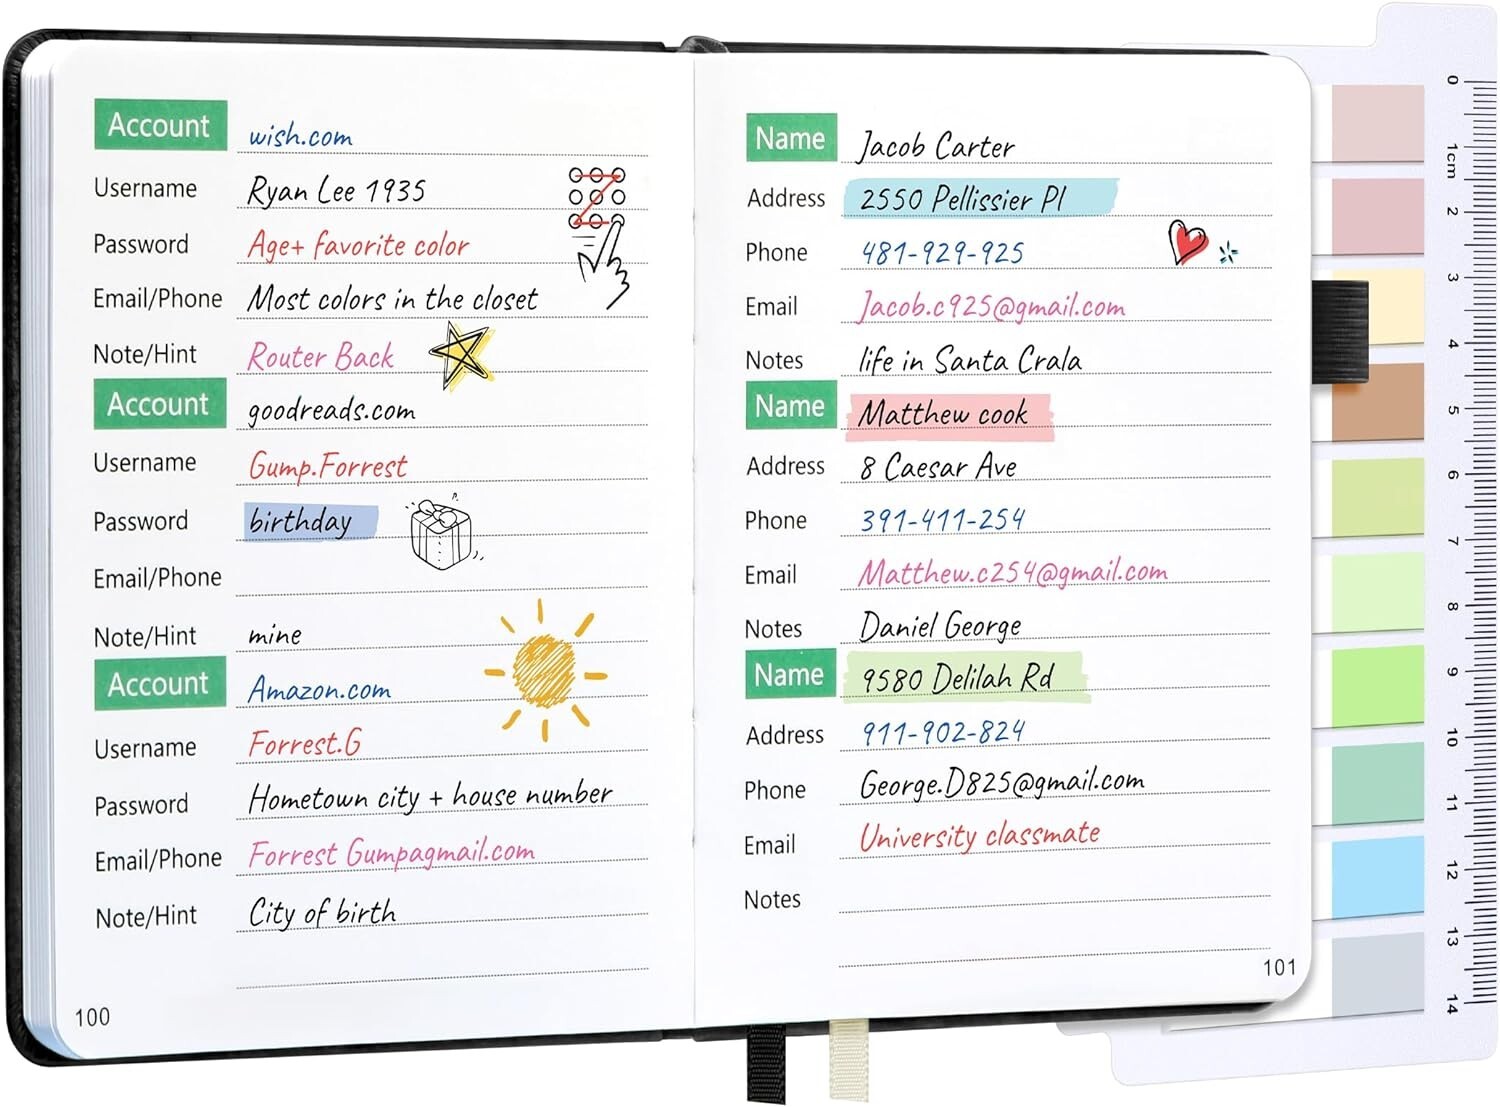 Account wish.com
Username Ryan Lee 1935
Password Age+ favorite color
Email/Phone Most colors in the closet
Note/Hint Router Back
Account goodreads.com
Username Gump.Forrest
Password birthday
Email/Phone
Note/Hint mine
Account Amazon.com
Username Forrest.G
Password Hometown city + house number
Email/Phone Forrest Gumpagmail.com
Note/Hint City of birth
100
Name Jacob Carter
Address 2550 Pellissier Pl
Phone 481-929-925
Email Jacob.c925@gmail.com
Notes life in Santa Crala
Name Matthew cook
Address 8 Caesar Ave
Phone 391-411-254
Email Matthew.c254@gmail.com
Notes Daniel George
Name 9580 Delilah Rd
Address 911-902-824
Phone George.D825@gmail.com
Email University classmate
Notes
101
0
1cm
2
3
4
5
6
7
8
9
10
11
12
13
14